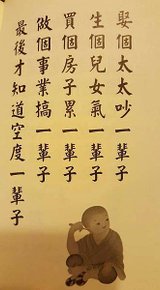 娶個太太吵一輩子
生個兒女氣一輩子
買個房子累一輩子
做個事業搞一輩子
最後才知道空度一輩子